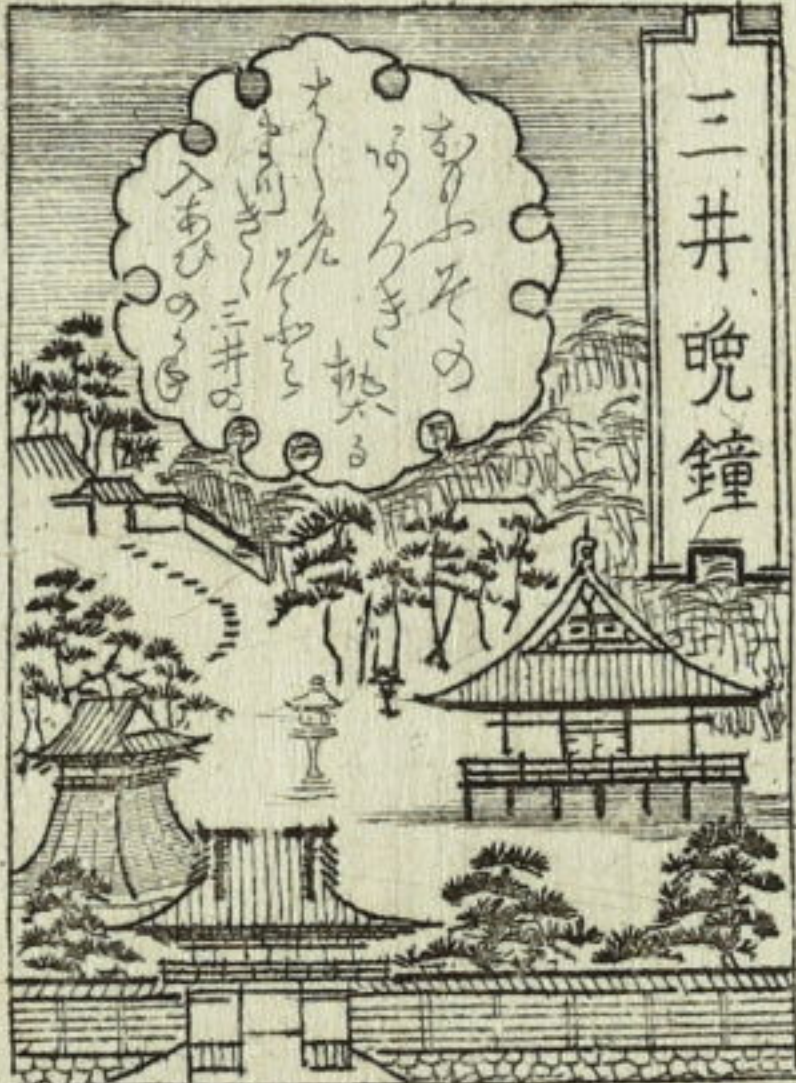 三井晩鐘
おもふその
あかつき
契る
はしめ
まつきく
三井の
入あひのかね